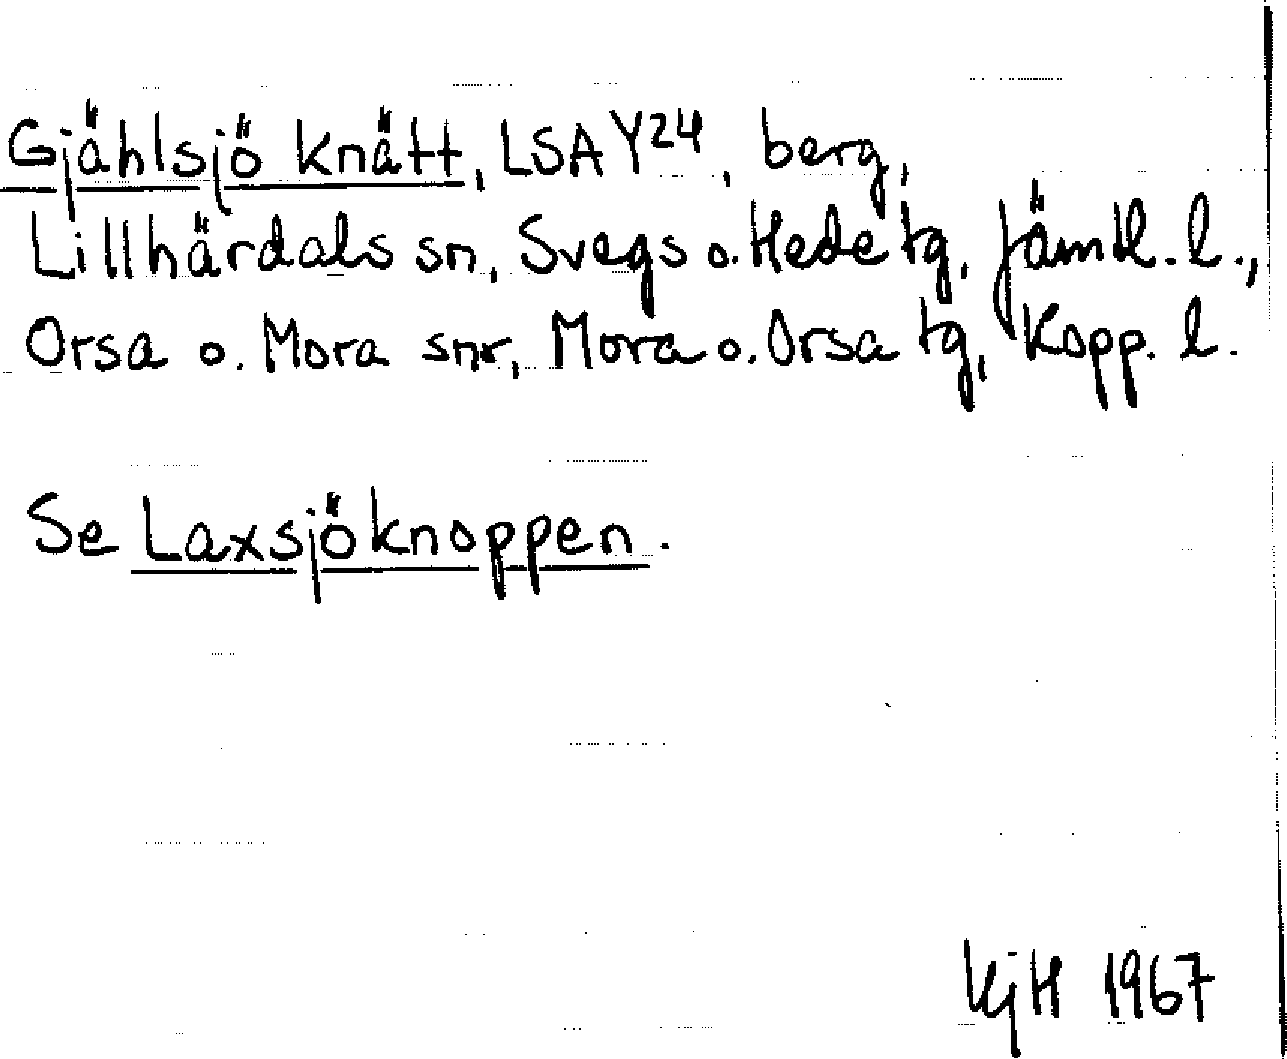 Gjählsjö knätt, LSA Y24, berg,
Lillhärdals sn, Svegs o. Hede tg, Jämtl. l.,
Orsa o. Mora snr, Mora o. Orsa tg, Kopp. l.
Se Laxsjöknoppen.
KjH 1967